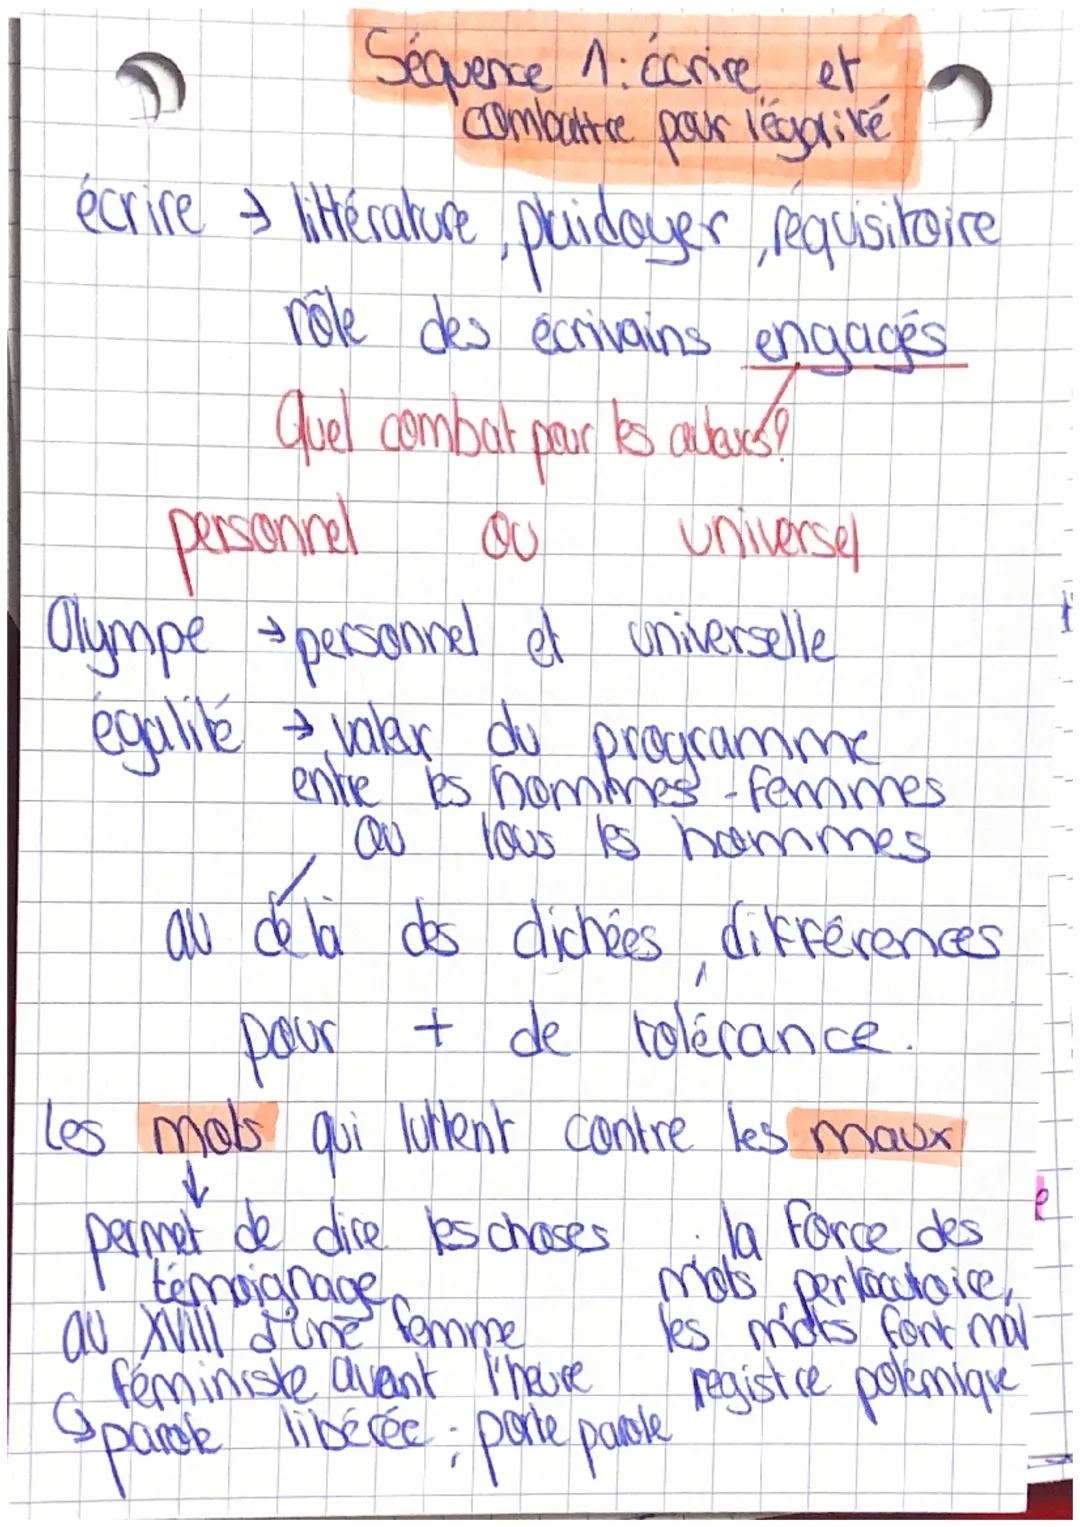 Séquence 1 : écrire et
combattre pour l'égalité
écrire → littérature, plaidoyer, réquisitoire
rôle des écrivains engagés
Quel combat pour les auteurs?
personnel ou universel
Olympe → personnel et universelle
égalité → valeur du programme
entre les hommes - femmes
ou tous les hommes
au délà des clichées, différences
pour + de tolérance.
Les mots qui luttent contre les maux
↓
permet de dire les choses
témoignage
au XVIII d'une femme
féministe avant l'heure
↳ parole libérée ; porte parole
la force des
mots perlocutoire,
les mots font mal
registre polémique